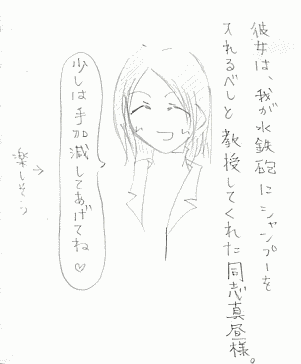 彼女は、我が水鉄砲にシャンプーを
入れるべしと教授してくれた同志真昼様。
少しは手加減してあげてね♡
→楽しそう